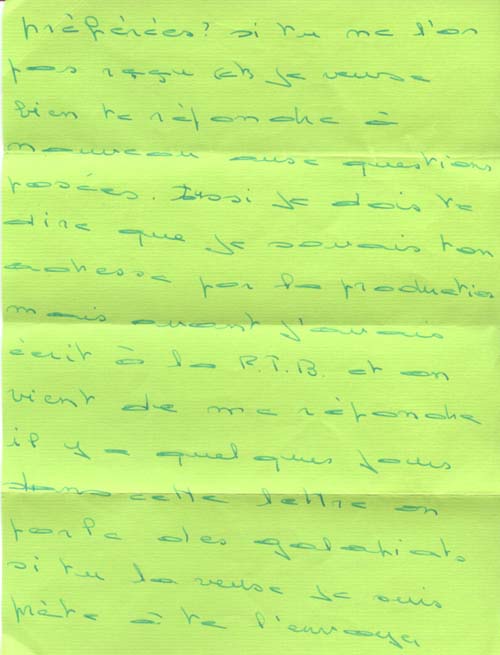 préférées? si tu ne l'as
pas reçu et je veuse
bien te répondre à
nouveau ause questions
posées. aussi je dois te
dire que je savais ton
adresse par la production
mais avant j'avais
écrit à la R.T.B. et on
vient de me répondre
il y a quelques jours
dans cette lettre on
parle des galapiats
si tu la veuse je suis
prète à te l'envoyer